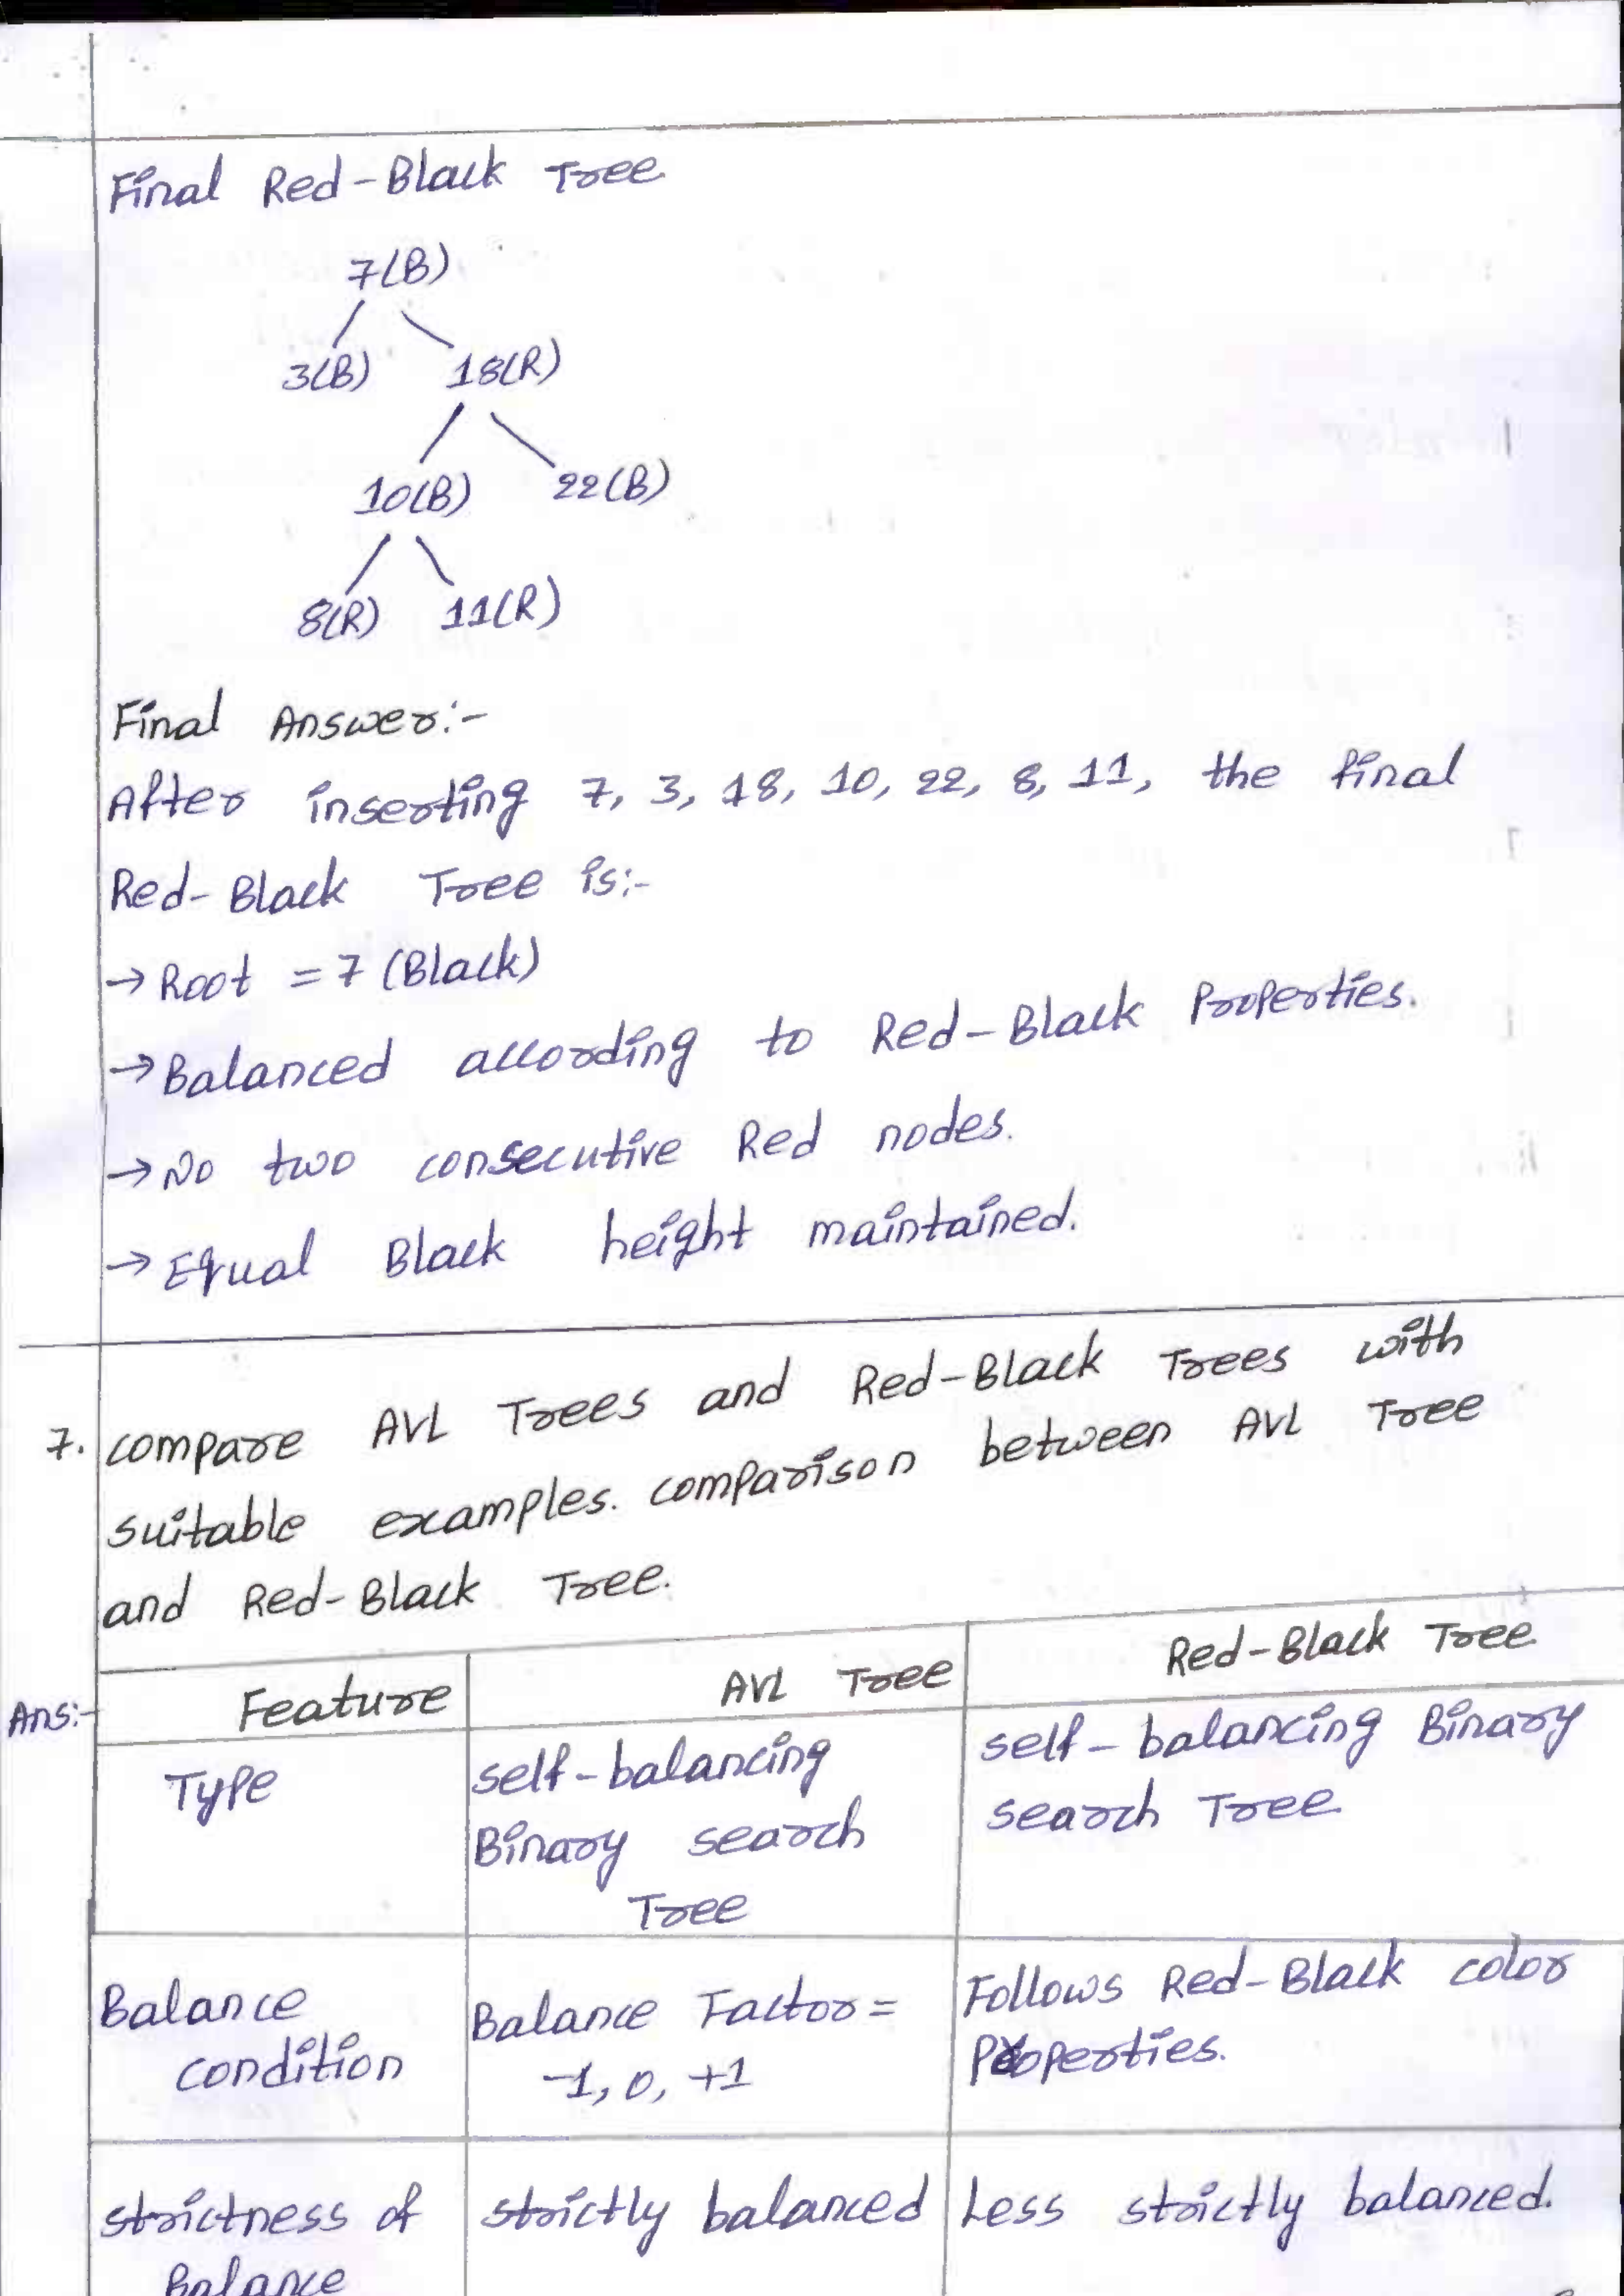 Final Red-Black Tree
7(B)
3(B) 18(R)
10(B) 22(B)
8(R) 11(R)
Final Answer:-
After inserting 7, 3, 18, 10, 22, 8, 11, the final
Red-Black Tree is:-
→ Root = 7 (Black)
→ Balanced according to Red-Black Properties.
→ No two consecutive Red nodes.
→ Equal Black height maintained.
7. compare AVL Trees and Red-Black Trees with
suitable examples. comparison between AVL Tree
and Red-Black Tree.
Ans:-
Feature
AVL Tree
Red-Black Tree
Type
self-balancing
Binary search
Tree
self-balancing Binary
search Tree
Balance
condition
Balance Factor =
-1, 0, +1
Follows Red-Black color
Properties.
strictness of
Balance
strictly balanced
Less strictly balanced.